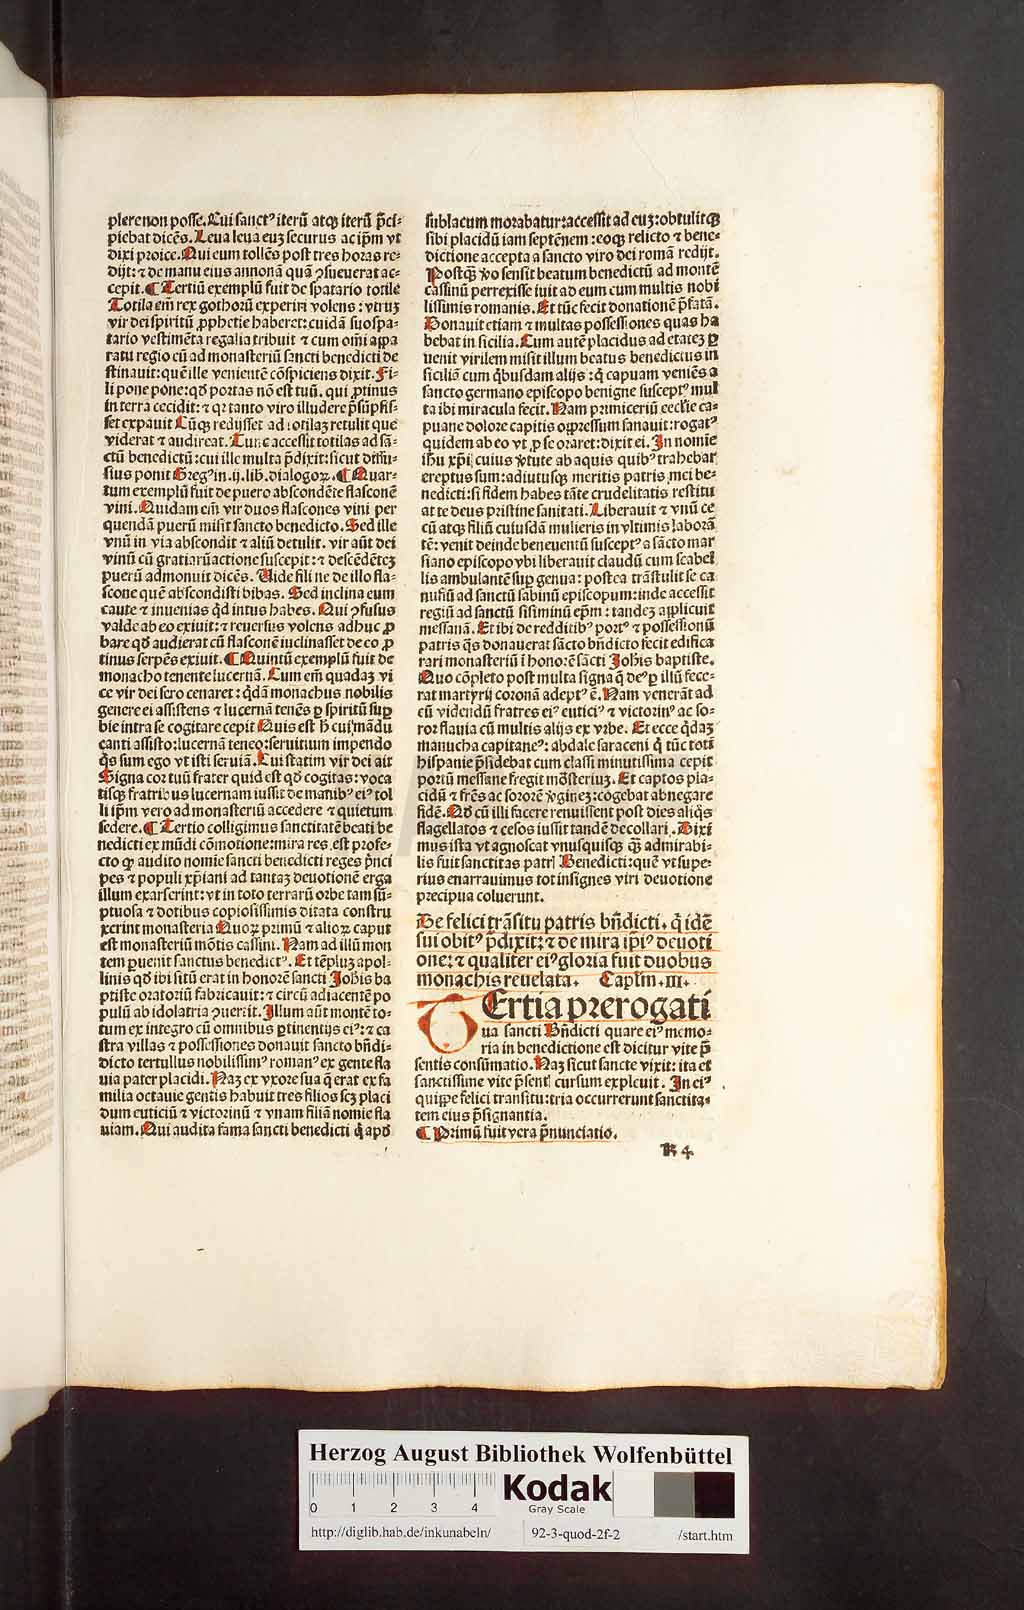 plere non posse. Cui sanctꝰ iterū atqꝫ iterū p̄ci⸗
piebat dicēs. Leua leua euꝫ securus ac ip̄m vt
dixi proice. Qui eum tollēs post tres horas re⸗
dijt: ⁊ de manu eius annonā quā ꝯsueuerat ac⸗
cepit. ¶ Tertiū exemplū fuit de spatario totile
Totila em̄ rex gothorū experiri volens: vtruꝫ
vir dei spiritū ꝓphetie haberet: cuidā suo spa⸗
tario vestimēta regalia tribuit ⁊ cum om̄i appa
ratu regio cū ad monasteriū sancti benedicti de
stinauit: quē ille venientē cōspiciens dixit. Fi⸗
li pone pone: qđ portas nō est tuū. qui ꝓtinus
in terra cecidit: ⁊ qꝛ tanto viro illudere p̄sūpsis⸗
set expauit Cūqꝫ redijsset ad totilaꝫ retulit que
viderat ⁊ audireat. Tunc accessit totilas ad sā⸗
ctū benedictū: cui ille multa p̄dixit: sicut diffu⸗
sius ponit Gregꝰ in .ij. lib. dialogoꝝ. ¶ Quar⸗
tum exemplū fuit de puero abscondēte flasconē
vini. Quidam em̄ vir duos flascones vini per
quendā puerū misit sancto benedicto. Sed ille
vnū in via abscondit ⁊ aliū detulit. vir aūt dei
vinū cū gratiarū actione suscepit: ⁊ descēdēteꝫ
puerū admonuit dicēs. Uide fili ne de illo fla⸗
scone quē abscondisti bibas. Sed inclina eum
caute ⁊ inuenias qđ intus habes. Qui ꝯfusus
valde ab eo exiuit: ⁊ reuersus volens adhuc ꝓ
bare qđ audierat cū flasconē iuclinasset de eo ꝓ
tinus serpēs exiuit. ¶ Quintū exemplū fuit de
monacho tenente lucernā. Cum em̄ quadaꝫ vi
ce vir dei sero cenaret: qđā monachus nobilis
genere ei assistens ⁊ lucernā tenēs ꝑ spiritū suꝑ
bie intra se cogitare cepit Quis est h̄ cui mādu
canti assisto: lucernā teneo: seruitium impendo
qs sum ego vt isti seruiā. Cui statim vir dei ait
Signa cor tuū frater quid est qđ cogitas: voca
tisqꝫ fratribus lucernam iussit de manibꝰ eiꝰ tol
li ip̄m vero ad monasteriū accedere ⁊ quietum
sedere. ¶ Tertio colligimus sanctitatē beati be
nedicti ex mūdi cōmotione: mira res est profe⸗
cto qꝫ audito nomie sancti benedicti reges p̄nci
pes ⁊ populi xp̄iani ad tantaꝫ deuotionē erga
illum exarserint: vt in toto terrarū orbe tam sū⸗
ptuosa ⁊ dotibus copiosissimis ditata constru
xerint monasteria Quoꝝ primū ⁊ alioꝝ caput
est monasteriū mōtis cassini. Nam ad illū mon
tem ꝑuenit sanctus benedictꝰ. Et tēpluꝫ apol⸗
linis qđ ibi sitū erat in honorē sancti Joh̄is ba
ptiste oratoriū fabricauit: ⁊ circū adiacentē po
pulū ab idolatria ꝯuertit. Illum aūt montē to⸗
tum ex integro cū omnibus ꝑtinentijs eiꝰ: ⁊ ca
stra villas ⁊ possessiones donauit sancto bn̄di⸗
dicto tertullus nobilissimꝰ romanꝰ ex gente fla
uia pater placidi. Naꝫ ex vxore sua q̄ erat ex fa
milia octauie gentis habuit tres filios scꝫ placi
dum euticiū ⁊ victorinū ⁊ vnam filiā nomie fla
uiam. Qui audita fama sancti benedicti q̄ apđ
sublacum morabatur: accessit ad euꝫ: obtulitqꝫ
sibi placidū iam septēnem: eoqꝫ relicto ⁊ bene⸗
dictione accepta a sancto viro dei romā redijt.
Postqꝫ v̓o sensit beatum benedictū ad montē
cassinū perrexisse iuit ad eum cum multis nobi
lissimis romanis. Et tūc fecit donationē p̄fatā.
Donauit etiam ⁊ multas possessiones quas ha
bebat in sicilia. Cum autē placidus ad etateꝫ ꝑ
uenit virilem misit illum beatus benedictus in
siciliā cum q̇busdam alijs: q̄ capuam veniēs a
sancto germano episcopo benigne susceptꝰ mul
ta ibi miracula fecit. Nam primiceriū eccl̄ie ca⸗
puane dolore capitis oppressum sanauit: rogatꝰ
quidem ab eo vt ꝓ se oraret: dixit ei. In nomīe
ih̄u xp̄i cuius v̓tute ab aquis quibꝰ trahebar
ereptus sum: adiutusqꝫ meritis patris mei be⸗
nedicti: si fidem habes tāte crudelitatis restitu
at te deus pristine sanitati. Liberauit ⁊ vnū ce
cū atqꝫ filiū cuiusdā mulieris in vltimis laborā
tē: venit deinde beneuentū susceptꝰ a sācto mar
siano episcopo vbi liberauit claudū cum scabel
lis ambulantē suꝑ genua: postea trāstulit se ca
nusiū ad sanctū sabinū episcopum: inde accessit
regiū ad sanctū sisiminū ep̄m: tandeꝫ applicuit
messanā. Et ibi de redditibꝰ portꝰ ⁊ possessionū
patris qs donauerat sācto bn̄dicto fecit edifica
rari monasteriū ī honorē sācti Joh̄is baptiste.
Quo cōpleto post multa signa q̄ deꝰ ꝑ illū fece⸗
rat martyrij coronā adeptꝰ ē. Nam venerāt ad
cū videndū fratres eiꝰ euticiꝰ ⁊ victorinꝰ ac so⸗
ror flauia cū multis alijs ex vrbe. Et ecce qđaꝫ
manucha capitaneꝰ: abdale saraceni q̄ tūc toti
hispanie p̄sidebat cum classi minutissima cepit
portū messane fregit mōsteriuꝫ. Et captos pla⸗
cidū ⁊ fr̄es ac sororē v̓gineꝫ: cogebat abnegare
fidē. Qđ cū illi facere renuissent post dies aliq̇s
flagellatos ⁊ cesos iussit tandē decollari. Dixi
mus ista vt agnoscat vnusquisqꝫ qꝫ admirabi⸗
lis fuit sanctitas patr̄ Benedicti: quē vt supe⸗
rius enarrauimus tot insignes viri deuotione
precipua coluerunt.
De felici trāsitu patris bn̄dicti. q̄ idē
sui obitꝰ p̄dixit: ⁊ de mira ip̄iꝰ deuoti
one: ⁊ qualiter eiꝰ gloria fuit duobus
monachis reuelata. Caplm̄. III.
Tertia prerogati
ua sancti Bn̄dicti quare eiꝰ memo⸗
ria in benedictione est dicitur vite p̄
sentis consūmatio. Naꝫ sicut sancte vixit: ita et
sanctissime vite p̄sent̄ cursum expleuit. In eiꝰ
quippe felici transitu: tria occurrerunt sanctita⸗
tem eius p̄signantia.
¶ Primū fuit vera p̄nunciatio.
R 4
Herzog August Bibliothek Wolfenbüttel
0 1 2 3 4
Kodak
Gray Scale
http://diglib.hab.de/inkunabeln/ 92-3-quod-2f-2 /start.htm